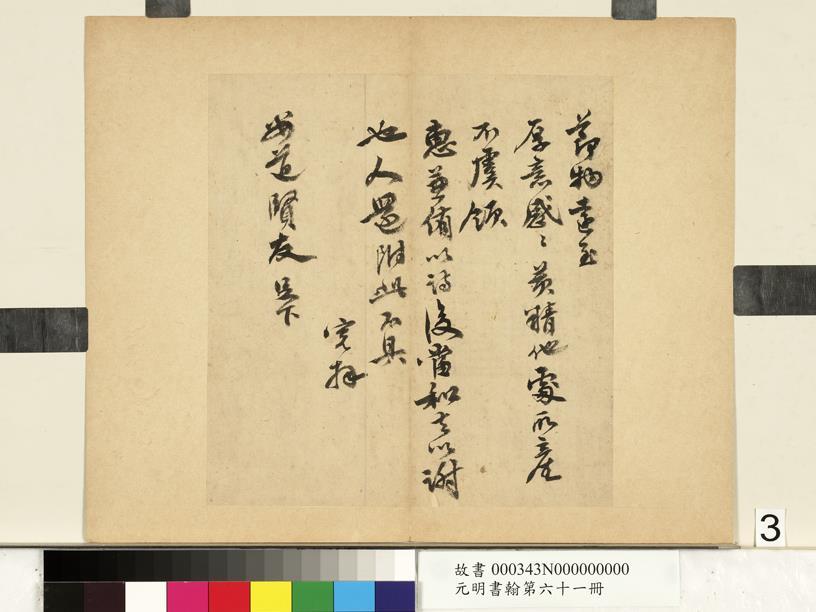 節物遠至
厚意感〻黃精他處所產
不虞領
惠兼備以詩後當和去以謝
也人還附此不具
寬拜
安道賢友足下
3
故書 000343N000000000
元明書翰第六十一冊